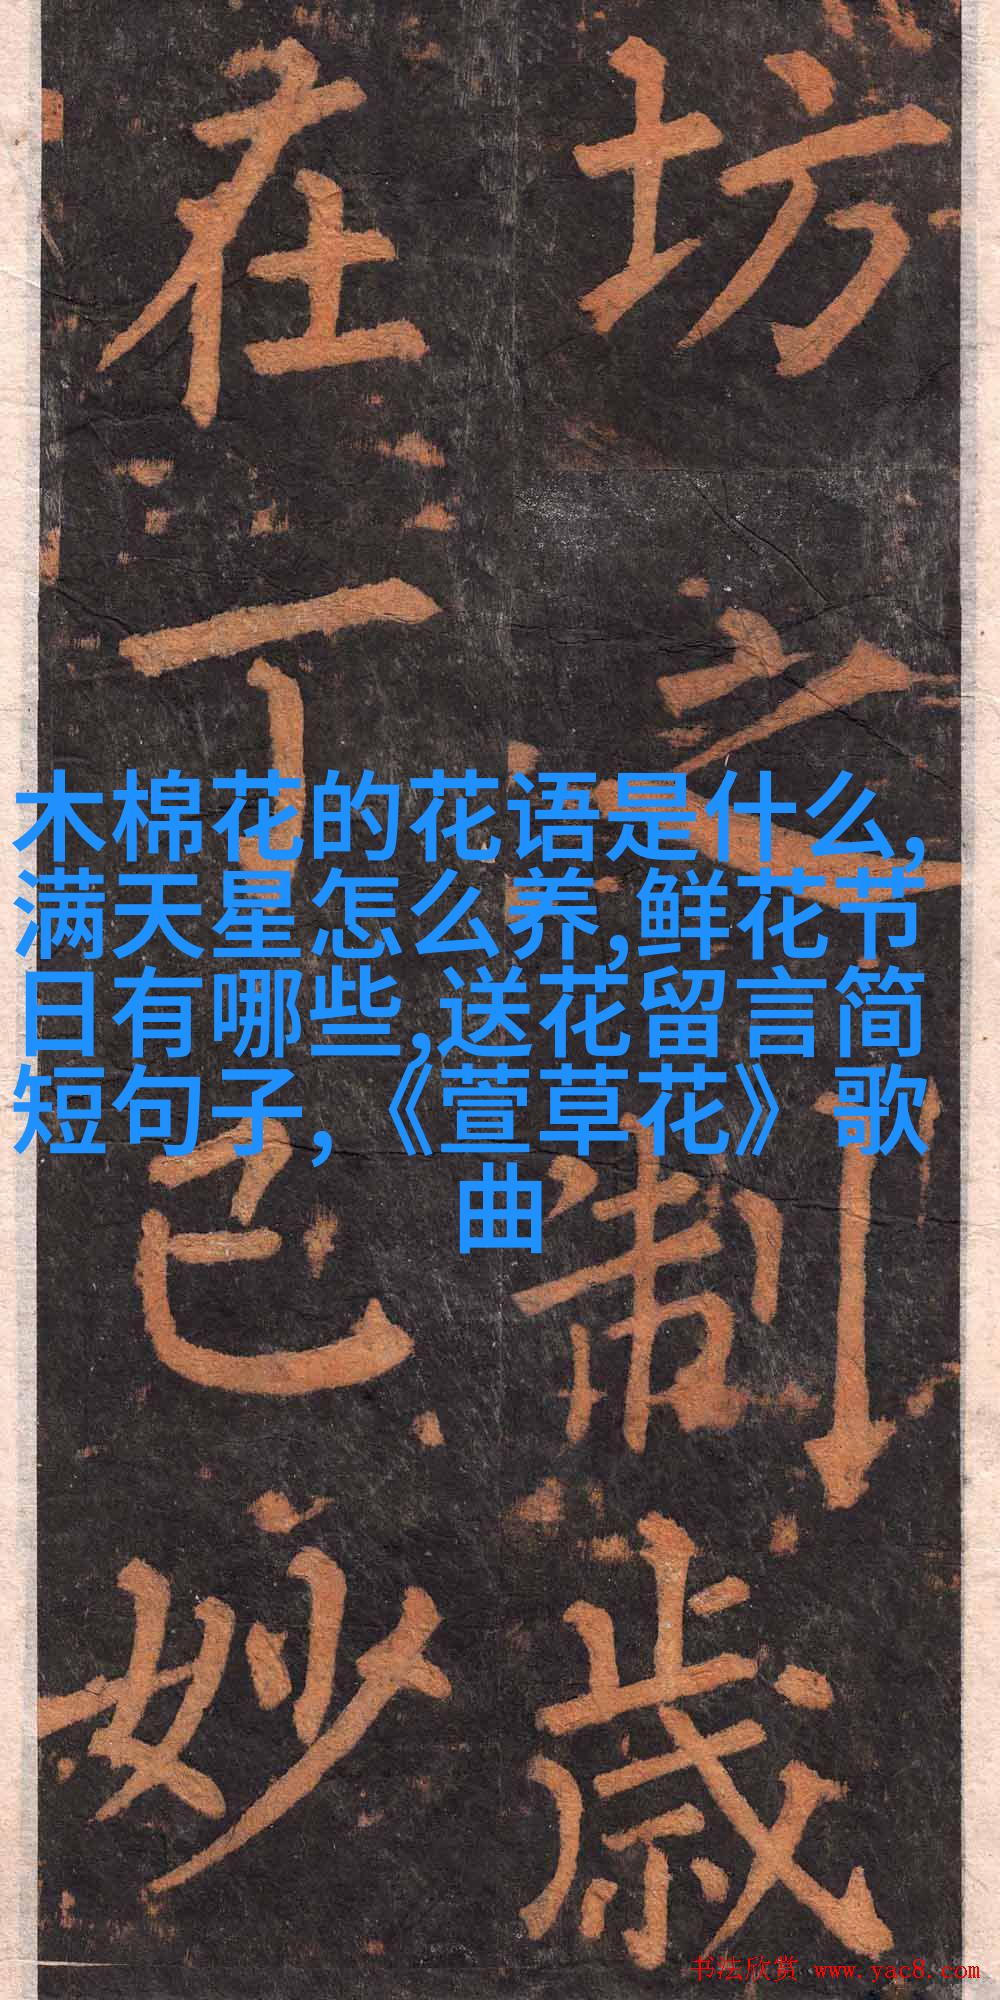 坊之制歲
在丁巳妙
木棉花的花语是什么,
满天星怎么养,鲜花节
日有哪些,送花留言简
短句子,《萱草花》歌
曲
书法欣赏 www.yac8.com